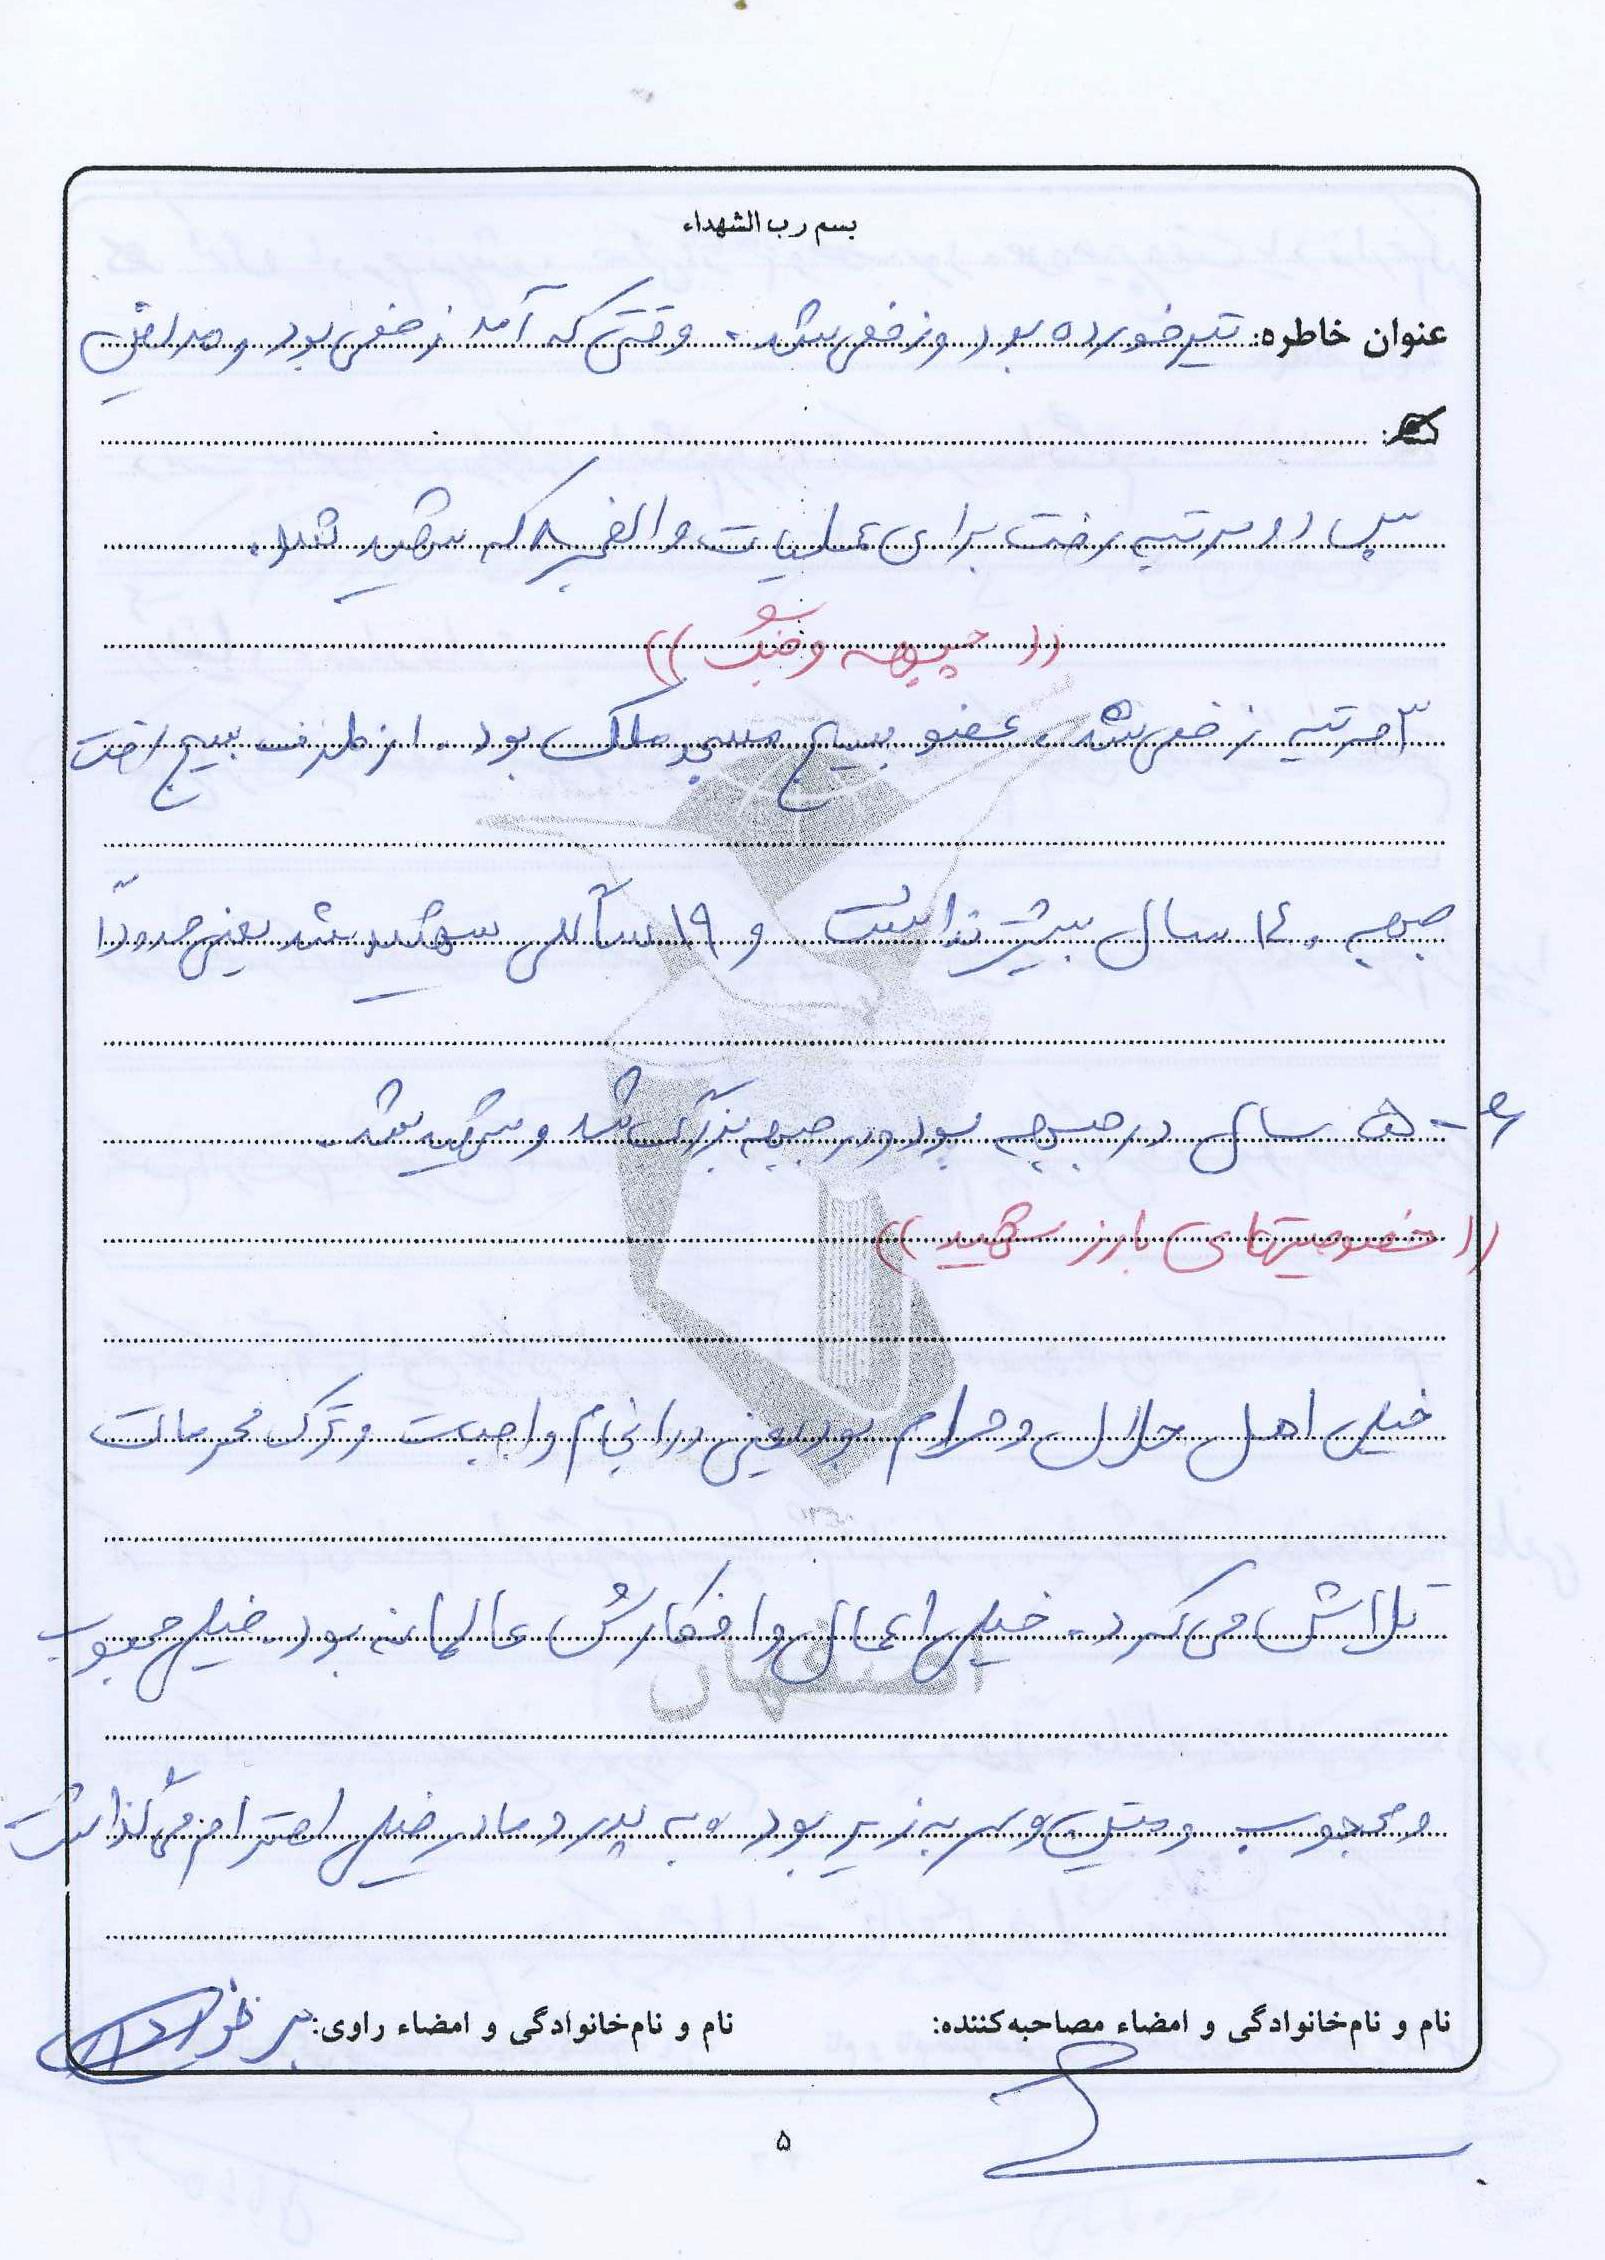 بسم رب الشهداء
عنوان خاطره: تیر خورده بود و زخمی شد. وقتی که آمد زخمی بود و
پس دو مرتبه رفت برای عملیات والفجر ۸ که شهید شد.
((جبهه و جنگ))
۳ مرتبه زخمی شد. عضو بسیج مسجد ملک بود. از طرف بسیج رفت
جبهه. ۱۴ سال بیشتر نداشت و ۱۹ سالگی شهید شد یعنی حدوداً
۵-۶ سال در جبهه بود و در جبهه بزرگ شد و شهید شد.
((خصوصیتهای بارز شهید))
خیلی اهل حلال و حرام بود یعنی در انجام واجبات و ترک محرمات
تلاش می کرد. خیلی اعمال و افکارش عالمانه بود. خیلی محبوب
و محجوب و متین و سر به زیر بود. و به پدر و مادر خیلی احترام می گذاشت
اصفهان
نام و نام‌خانوادگی و امضاء مصاحبه‌کننده:
نام و نام‌خانوادگی و امضاء راوی:
۵